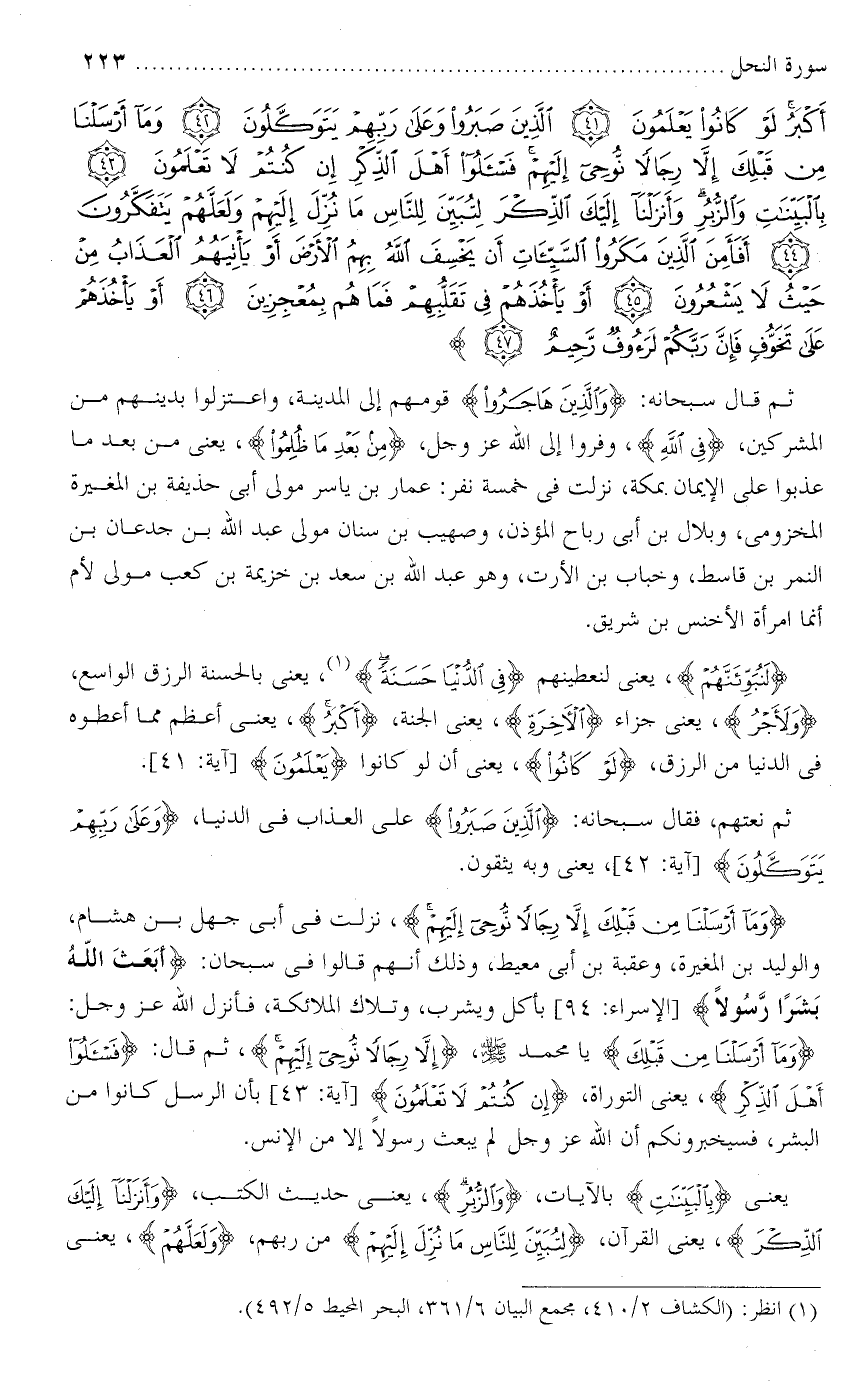 سورة النحل ........................................................................ ٢٢٣
أَكْبَرُ لَوْ كَانُوا۟ يَعْلَمُونَ ٤١ ٱلَّذِينَ صَبَرُوا۟ وَعَلَىٰ رَبِّهِمْ يَتَوَكَّلُونَ ٤٢ وَمَآ أَرْسَلْنَا
مِن قَبْلِكَ إِلَّا رِجَالًا نُّوحِىٓ إِلَيْهِمْ ۚ فَسْـَٔلُوٓا۟ أَهْلَ ٱلذِّكْرِ إِن كُنتُمْ لَا تَعْلَمُونَ ٤٣
بِٱلْبَيِّنَٰتِ وَٱلزُّبُرِ ۗ وَأَنزَلْنَآ إِلَيْكَ ٱلذِّكْرَ لِتُبَيِّنَ لِلنَّاسِ مَا نُزِّلَ إِلَيْهِمْ وَلَعَلَّهُمْ يَتَفَكَّرُونَ
٤٤ أَفَأَمِنَ ٱلَّذِينَ مَكَرُوا۟ ٱلسَّيِّـَٔاتِ أَن يَخْسِفَ ٱللَّهُ بِهِمُ ٱلْأَرْضَ أَوْ يَأْتِيَهُمُ ٱلْعَذَابُ مِنْ
حَيْثُ لَا يَشْعُرُونَ ٤٥ أَوْ يَأْخُذَهُمْ فِى تَقَلُّبِهِمْ فَمَا هُم بِمُعْجِزِينَ ٤٦ أَوْ يَأْخُذَهُمْ
عَلَىٰ تَخَوُّفٍ فَإِنَّ رَبَّكُمْ لَرَءُوفٌ رَّحِيمٌ ٤٧ ﴾
ثم قال سبحانه: ﴿وَٱلَّذِينَ هَاجَرُوا۟﴾ قومهم إلى المدينة، واعتزلوا بدينهم من
المشركين، ﴿فِى ٱللَّهِ﴾، وفروا إلى الله عز وجل، ﴿مِنۢ بَعْدِ مَا ظُلِمُوا۟﴾، يعنى من بعد ما
عذبوا على الإيمان بمكة، نزلت فى خمسة نفر: عمار بن ياسر مولى أبى حذيفة بن المغيرة
المخزومى، وبلال بن أبى رباح المؤذن، وصهيب بن سنان مولى عبد الله بن جدعان بن
النمر بن قاسط، وخباب بن الأرت، وهو عبد الله بن سعد بن خزيمة بن كعب مولى لأم
أنما امرأة الأخنس بن شريق.
﴿لَنُبَوِّئَنَّهُمْ﴾، يعنى لنعطينهم ﴿فِى ٱلدُّنْيَا حَسَنَةً ۖ﴾(١)، يعنى بالحسنة الرزق الواسع،
﴿وَلَأَجْرُ﴾، يعنى جزاء ﴿ٱلْءَاخِرَةِ﴾، يعنى الجنة، ﴿أَكْبَرُ ۚ﴾، يعنى أعظم مما أعطوه
فى الدنيا من الرزق، ﴿لَوْ كَانُوا۟﴾، يعنى أن لو كانوا ﴿يَعْلَمُونَ﴾ [آية: ٤١].
ثم نعتهم، فقال سبحانه: ﴿ٱلَّذِينَ صَبَرُوا۟﴾ على العذاب فى الدنيا، ﴿وَعَلَىٰ رَبِّهِمْ
يَتَوَكَّلُونَ﴾ [آية: ٤٢]، يعنى وبه يثقون.
﴿وَمَآ أَرْسَلْنَا مِن قَبْلِكَ إِلَّا رِجَالًا نُّوحِىٓ إِلَيْهِمْ ۚ﴾، نزلت فى أبى جهل بن هشام،
والوليد بن المغيرة، وعقبة بن أبى معيط، وذلك أنهم قالوا فى سبحان: ﴿أَبَعَثَ اللَّهُ
بَشَرًا رَّسُولاً﴾ [الإسراء: ٩٤] يأكل ويشرب، وتلاك الملائكة، فأنزل الله عز وجل:
﴿وَمَآ أَرْسَلْنَا مِن قَبْلِكَ﴾ يا محمد ﷺ، ﴿إِلَّا رِجَالًا نُّوحِىٓ إِلَيْهِمْ ۚ﴾، ثم قال: ﴿فَسْـَٔلُوٓا۟
أَهْلَ ٱلذِّكْرِ﴾، يعنى التوراة، ﴿إِن كُنتُمْ لَا تَعْلَمُونَ﴾ [آية: ٤٣] بأن الرسل كانوا من
البشر، فسيخبرونكم أن الله عز وجل لم يبعث رسولاً إلا من الإنس.
يعنى ﴿بِٱلْبَيِّنَٰتِ﴾ بالآيات، ﴿وَٱلزُّبُرِ ۗ﴾، يعنى حديث الكتب، ﴿وَأَنزَلْنَآ إِلَيْكَ
ٱلذِّكْرَ﴾، يعنى القرآن، ﴿لِتُبَيِّنَ لِلنَّاسِ مَا نُزِّلَ إِلَيْهِمْ﴾ من ربهم، ﴿وَلَعَلَّهُمْ﴾، يعنى
(١) انظر: (الكشاف ٤١٠/٢، مجمع البيان ٣٦١/٦، البحر المحيط ٤٩٢/٥).